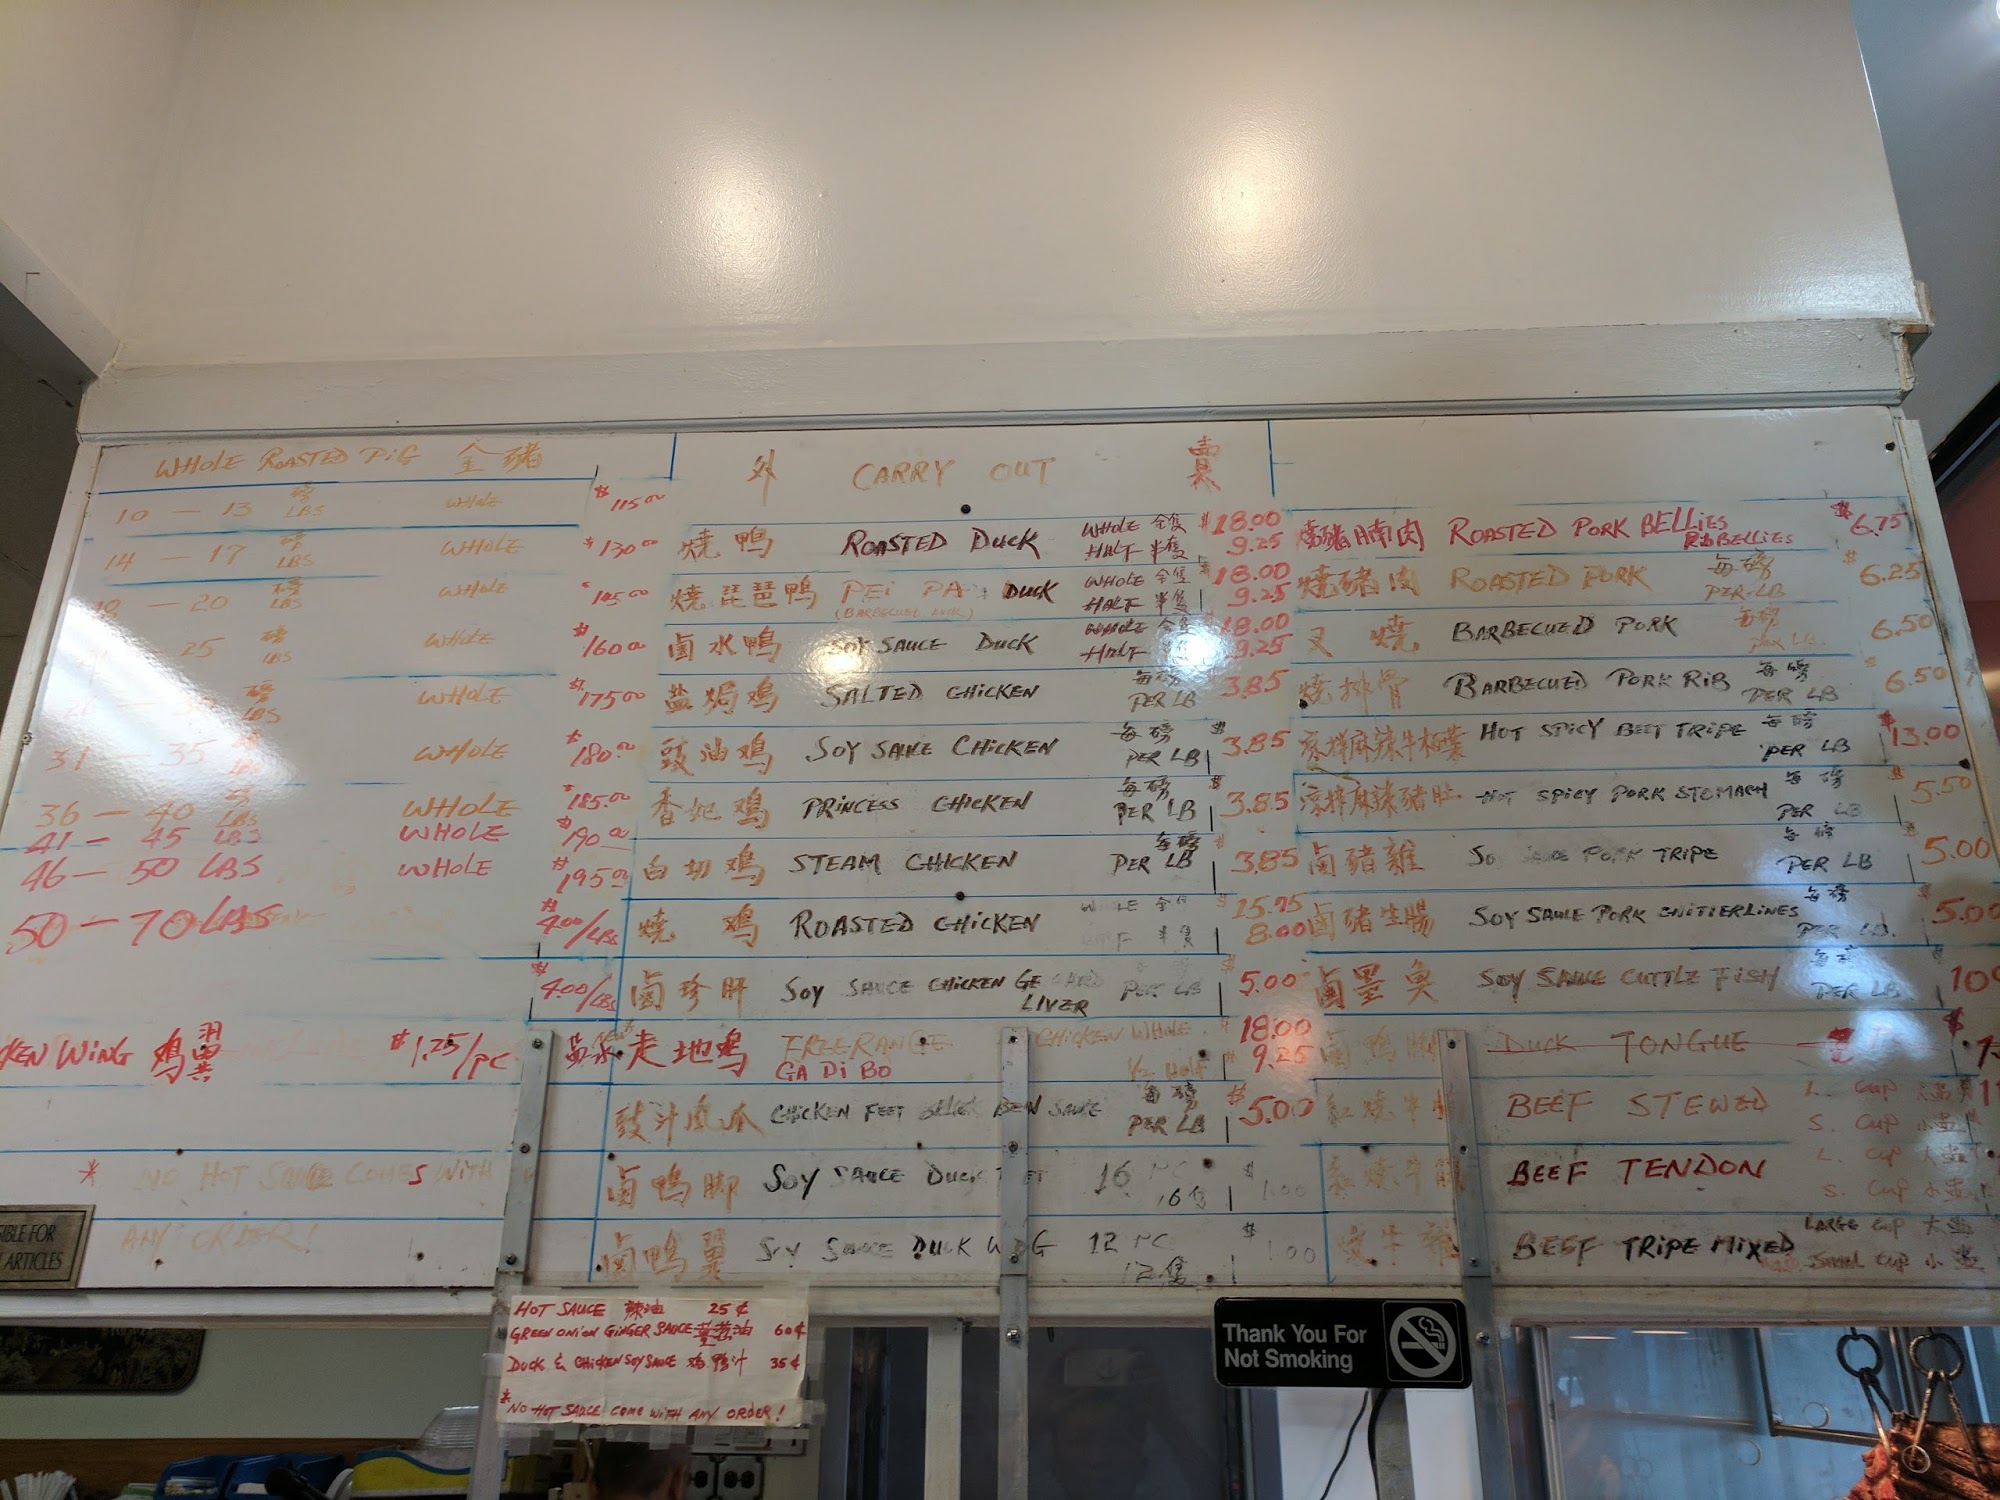 WHOLE ROASTED PIG 全豬
10 — 13 磅 LBS WHOLE $115.00
14 — 17 磅 LBS WHOLE $130.00
— 20 磅 LBS WHOLE
25 磅 LBS WHOLE $160.00
磅 LBS WHOLE $175.00
31 — 35 WHOLE $180.00
36 — 40 磅 LBS WHOLE $185.00
41 — 45 LBS WHOLE $190.00
46 — 50 LBS WHOLE $195.00
50 — 70 LBS $4.00/LBS
$4.00/LBS
KEN WING 鸡翼 $1.25/PC
* NO HOT SAUCE COMES WITH
ANY ORDER!
SIBLE FOR
ARTICLES
外 CARRY OUT 賣
燒鴨 ROASTED DUCK WHOLE 全隻 $18.00
HALF 半隻 9.25
燒琵琶鴨 PEI PA DUCK WHOLE 全隻 18.00
(BARBECUED DUCK) HALF 半隻 9.25
鹵水鴨 SOY SAUCE DUCK WHOLE 全隻 18.00
HALF 9.25
盐焗鸡 SALTED CHICKEN 每磅 PER LB 3.85
豉油鸡 SOY SAUCE CHICKEN 每磅 PER LB $3.85
香妃鸡 PRINCESS CHICKEN 每磅 PER LB $3.85
白切鸡 STEAM CHICKEN 每磅 PER LB 3.85
燒鸡 ROASTED CHICKEN 15.75
半隻 8.00
鹵珍肝 SOY SAUCE CHICKEN LIVER PER LB $5.00
走地鸡 FREE RANGE CHICKEN WHOLE 18.00
GA DI BO 1/2 HALF 9.25
豉汁鳳爪 CHICKEN FEET BEAN SAUCE 每磅 PER LB $5.00
鹵鴨脚 SOY SAUCE DUCK 16 PC $1.00
16隻
鹵鴨翼 SOY SAUCE DUCK 12 PC $1.00
12隻
燒豬腩肉 ROASTED PORK BELLIES $6.75
RIB BELLIES
燒豬肉 ROASTED PORK 每磅 PER-LB $6.25
叉燒 BARBECUED PORK 每磅 6.50
燒排骨 BARBECUED PORK RIB 每磅 PER LB 6.50
HOT SPICY BEEF TRIPE 每磅 PER LB $13.00
涼拌麻辣豬肚 HOT SPICY PORK STOMACH 每磅 PER LB 5.50
鹵豬雜 PORK TRIPE 每磅 PER LB 5.00
鹵豬生腸 SOY SAUCE PORK CHITTERLINES 每磅 PER LB. 5.00
鹵墨魚 SOY SAUCE CUTTLE FISH PER LB 10
鹵鴨脷 DUCK TONGUE $
紅燒牛 BEEF STEWED L. CUP
S. CUP
BEEF TENDON L. CUP
S. CUP
BEEF TRIPE MIXED LARGE CUP
SMALL CUP
HOT SAUCE 辣油 25¢
GREEN ONION GINGER SAUCE 薑葱油 60¢
DUCK & CHICKEN SOY SAUCE 鸡鴨汁 35¢
*NO HOT SAUCE COME WITH ANY ORDER!
Thank You For
Not Smoking